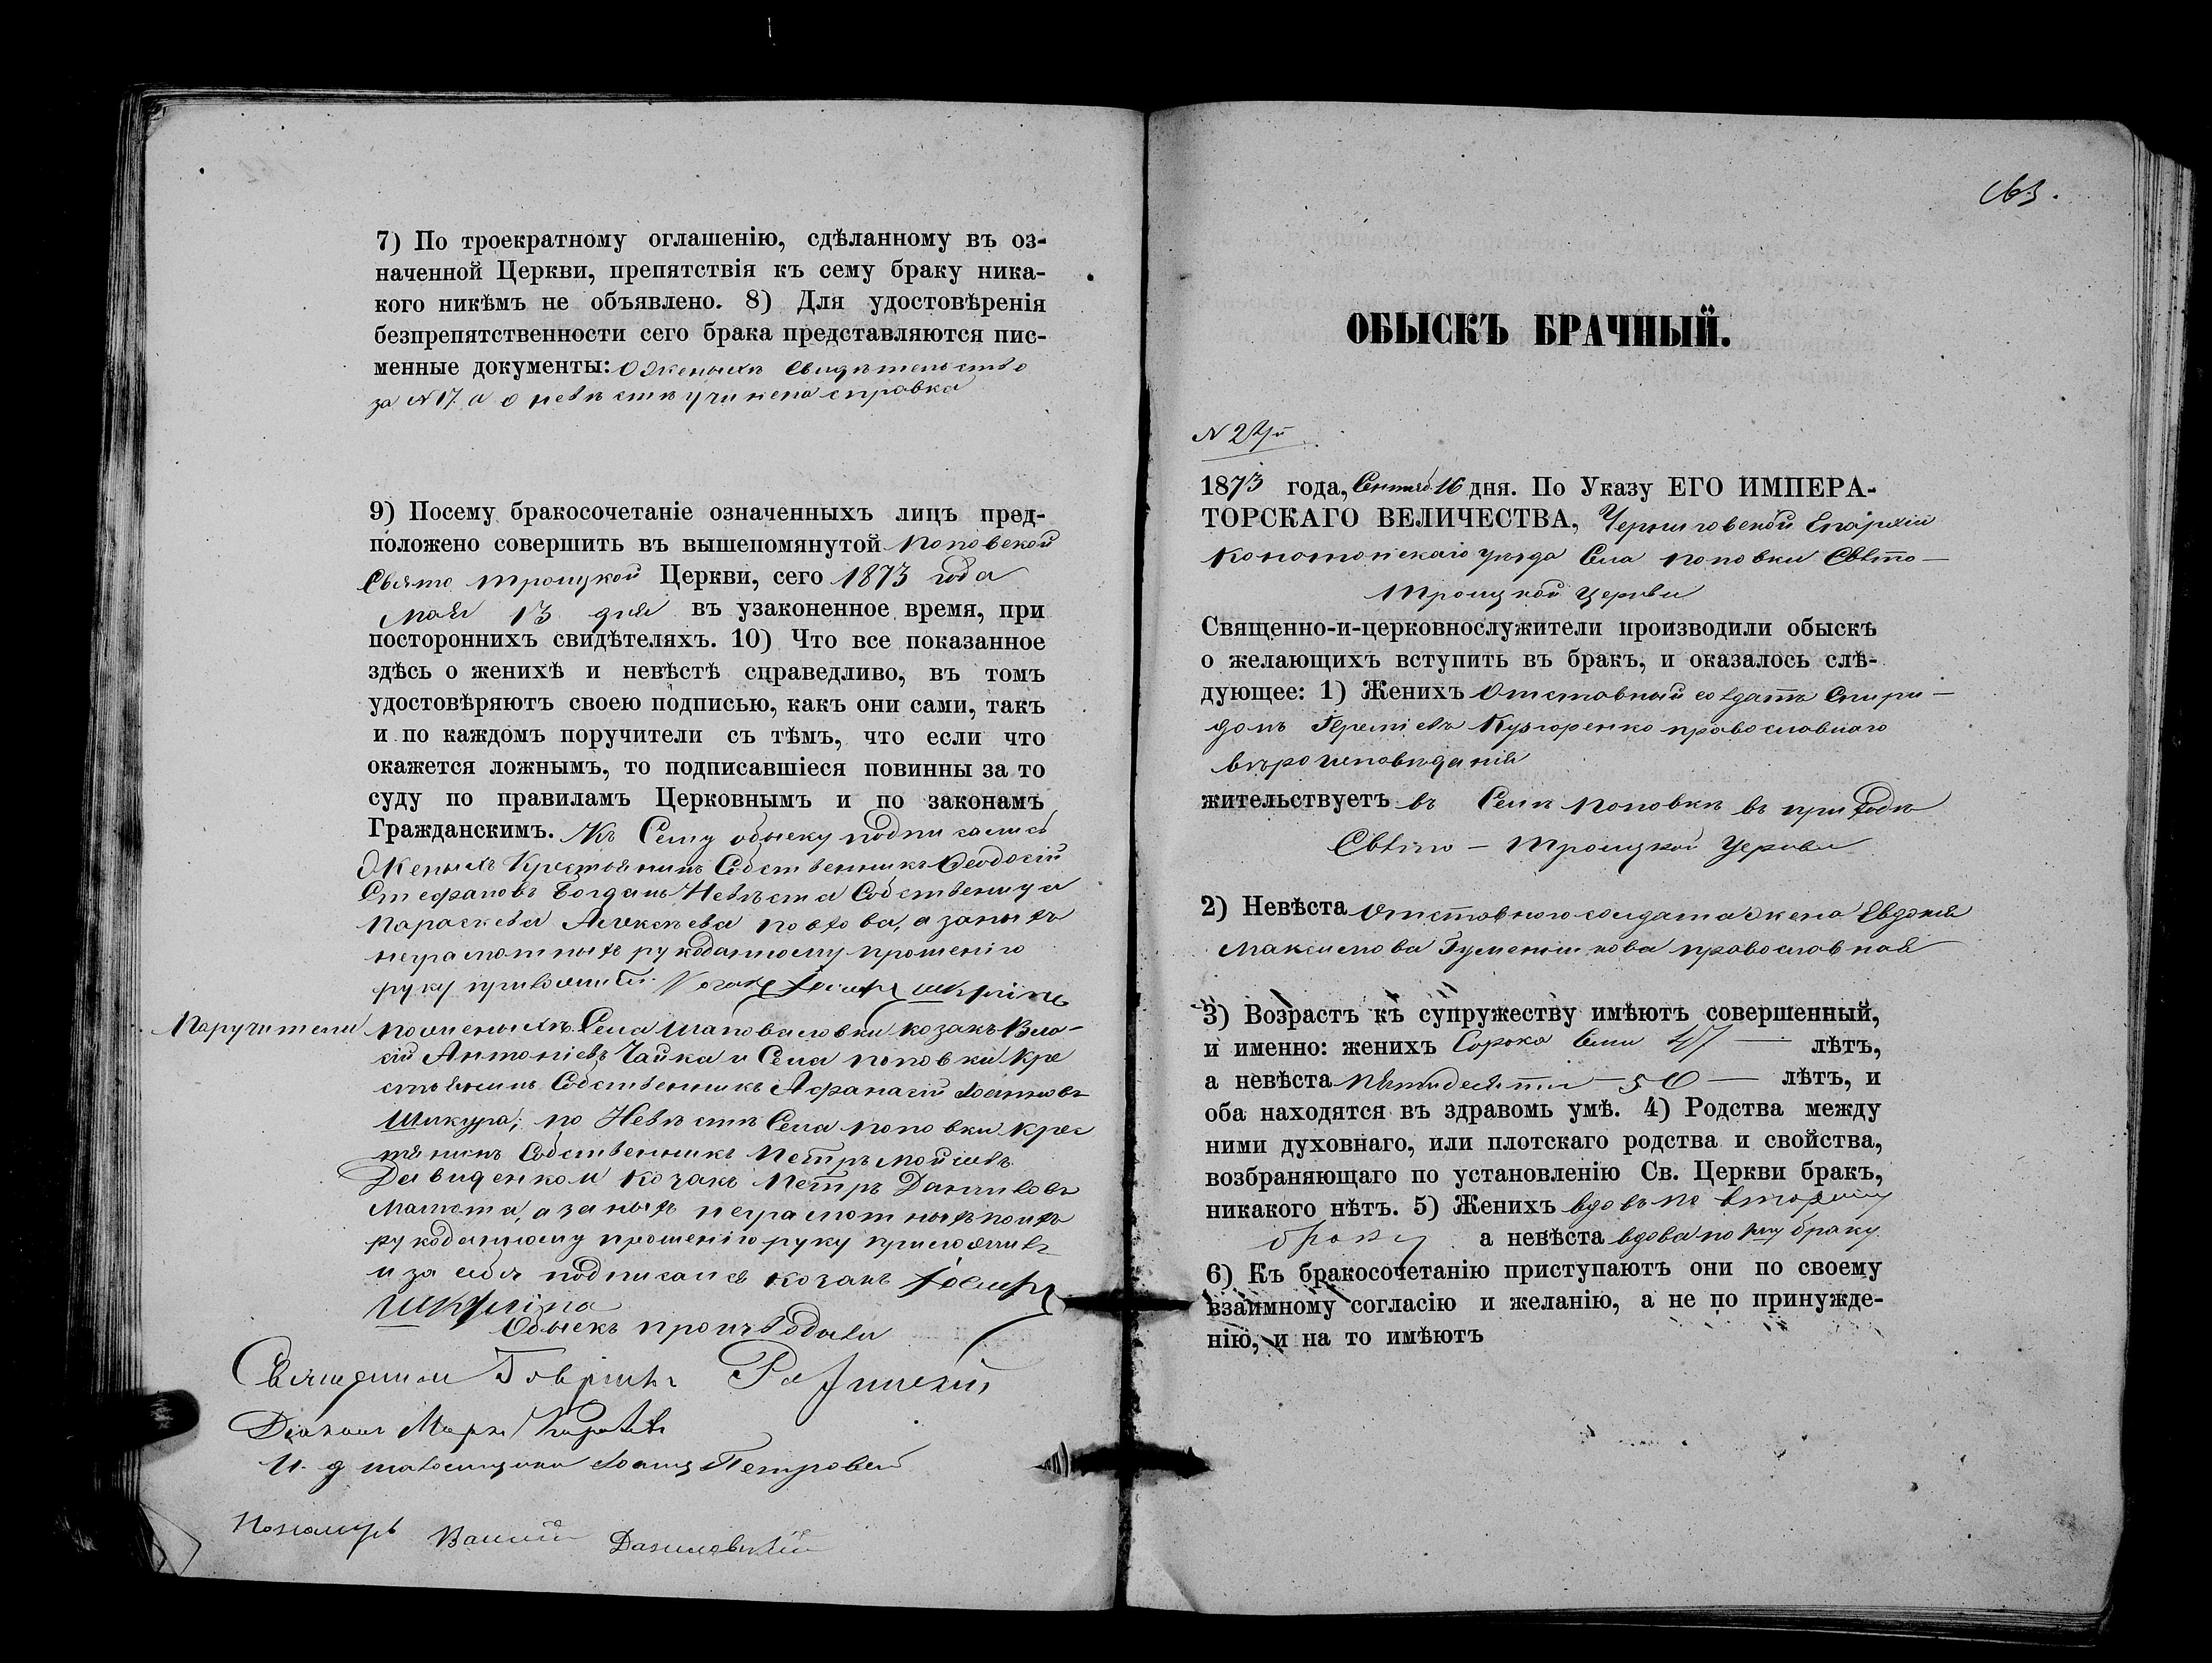 7) По троекратному оглашенію, сдѣланному въ оз-
наченной Церкви, препятствія къ сему браку ника-
кого никѣмъ не объявлено. 8) Для удостовѣренія
безпрепятственности сего брака представляются пис-
менные документы: О женихѣ свидѣтельство
за N 17. а о невѣстѣ учинена справка
9) Посему бракосочетаніе означенныхъ лицъ пред-
положено совершить въ вышепомянутой Поповской
Свято Троицкой Церкви, сего 1873 года
Мая 13 дня въ узаконенное время, при
постороннихъ свидѣтеляхъ. 10) Что все показанное
здѣсь о женихѣ и невѣстѣ справедливо, въ томъ
удостовѣряютъ своею подписью, какъ они сами, такъ
и по каждомъ поручители съ тѣмъ, что если что
окажется ложнымъ, то подписавшіеся повинны за то
суду по правиламъ Церковнымъ и по законамъ
Гражданскимъ. Къ Сему обыску подписались
Женихъ Крестьянинъ Собственникъ Феодосій
Стефановъ Богданъ Невѣста Собственница
Параскева Алексѣева а за нихъ
неграмотныхъ рукоданному прошенію
руку приложилъ Козакъ
Паручители По женихѣ Села Шаповаловки козакъ Вла-
сій Антоніевъ Чайка и Села Поповки Кре
стьянинъ Собственникъ Афанасій Іоанновъ
Шикура; по Невѣстѣ Села Поповки Крес
тянинъ Собственникъ Петръ Мойсеевъ
Давиденко и Козакъ Петръ Даниловъ
а за нихъ неграмотныхъ по ихъ
рукоданному прошенію руку приложилъ
и за себя подписался козакъ
Обыскъ производили
Священникъ Гавріилъ
Діаконъ Маркъ
И. д псаломщика Іоаннъ Петровскій
Пономарь Василій Даниловскій
163.
ОБЫСКЪ БРАЧНЫЙ.
N 2й
1873 года, Сентяб. 16 дня. По Указу ЕГО ИМПЕРА-
ТОРСКАГО ВЕЛИЧЕСТВА, Черниговской Епархіи
Конотопскаго уѣзда Села Поповки Свято-
Троицкой Церкви
Священно-и-церковнослужители производили обыскъ
о желающихъ вступить въ бракъ, и оказалось слѣ-
дующее: 1) Женихъ Отставный солдатъ Спири-
донъ православнаго
вѣроисповѣданія
жительствуетъ въ Селѣ Поповкѣ въ приходѣ
Свято - Троицкой Церкви
2) Невѣста Отставного солдата жена Евдокія
Максимова православная
3) Возрастъ къ супружеству имѣютъ совершенный,
и именно: женихъ Сорока Семи 47 — лѣтъ,
а невѣста Пятидесяти — 50 — лѣтъ, и
оба находятся въ здравомь умѣ. 4) Родства между
ними духовнаго, или плотскаго родства и свойства,
возбраняющаго по установленію Св. Церкви бракъ,
никакого нѣтъ. 5) Женихъ вдовъ по второму
браку а невѣста вдова по браку
6) Къ бракосочетанію приступаютъ они по своему
взаимному согласію и желанію, а не по принужде-
нію, и на то имѣютъ